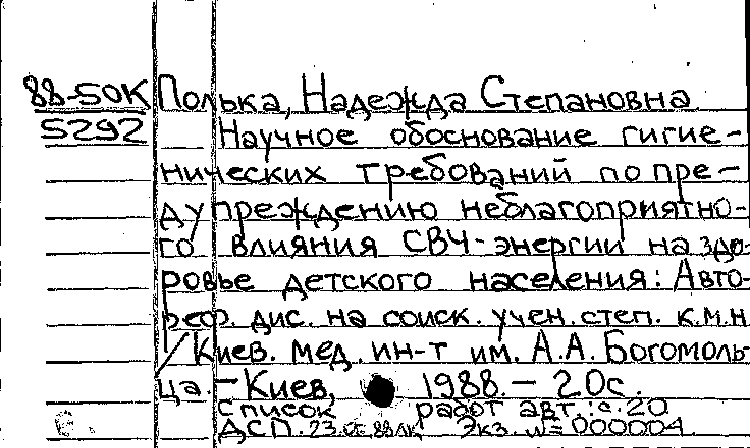 88-50К Полька, Надежда Степановна
5292 Научное обоснование гигие-
нических требований по пре-
дупреждению неблагоприятно-
го влияния СВЧ-энергии на здо-
ровье детского населения: Авто-
реф. дис. на соиск. учен. степ. к.м.н
/Киев. мед. ин-т им. А.А. Богомоль-
ца. - Киев, 1988. - 20с.
Список работ авт.: с. 20
ДСП. Экз. №000004